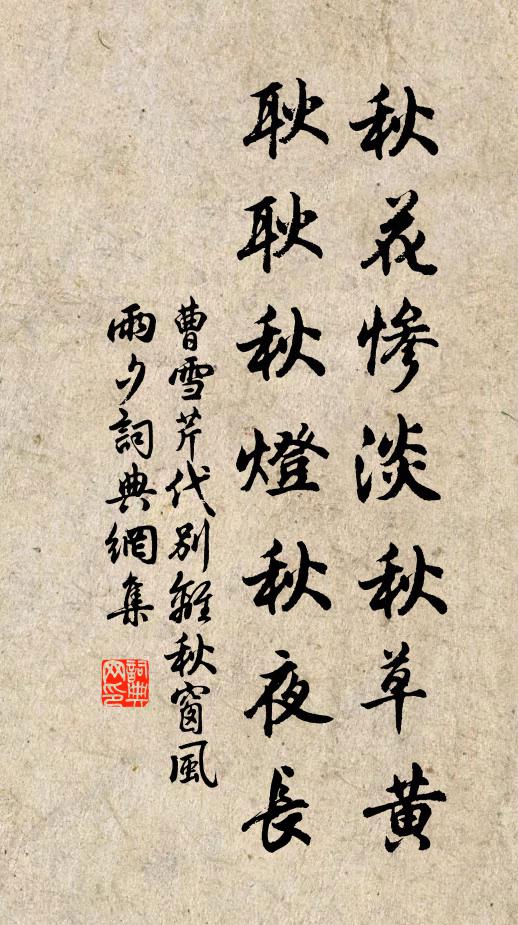 秋花慘淡秋草黃
耿耿秋燈秋夜長
曹雪芹代別離秋窗風
雨夕詞典網集
詞典
网印